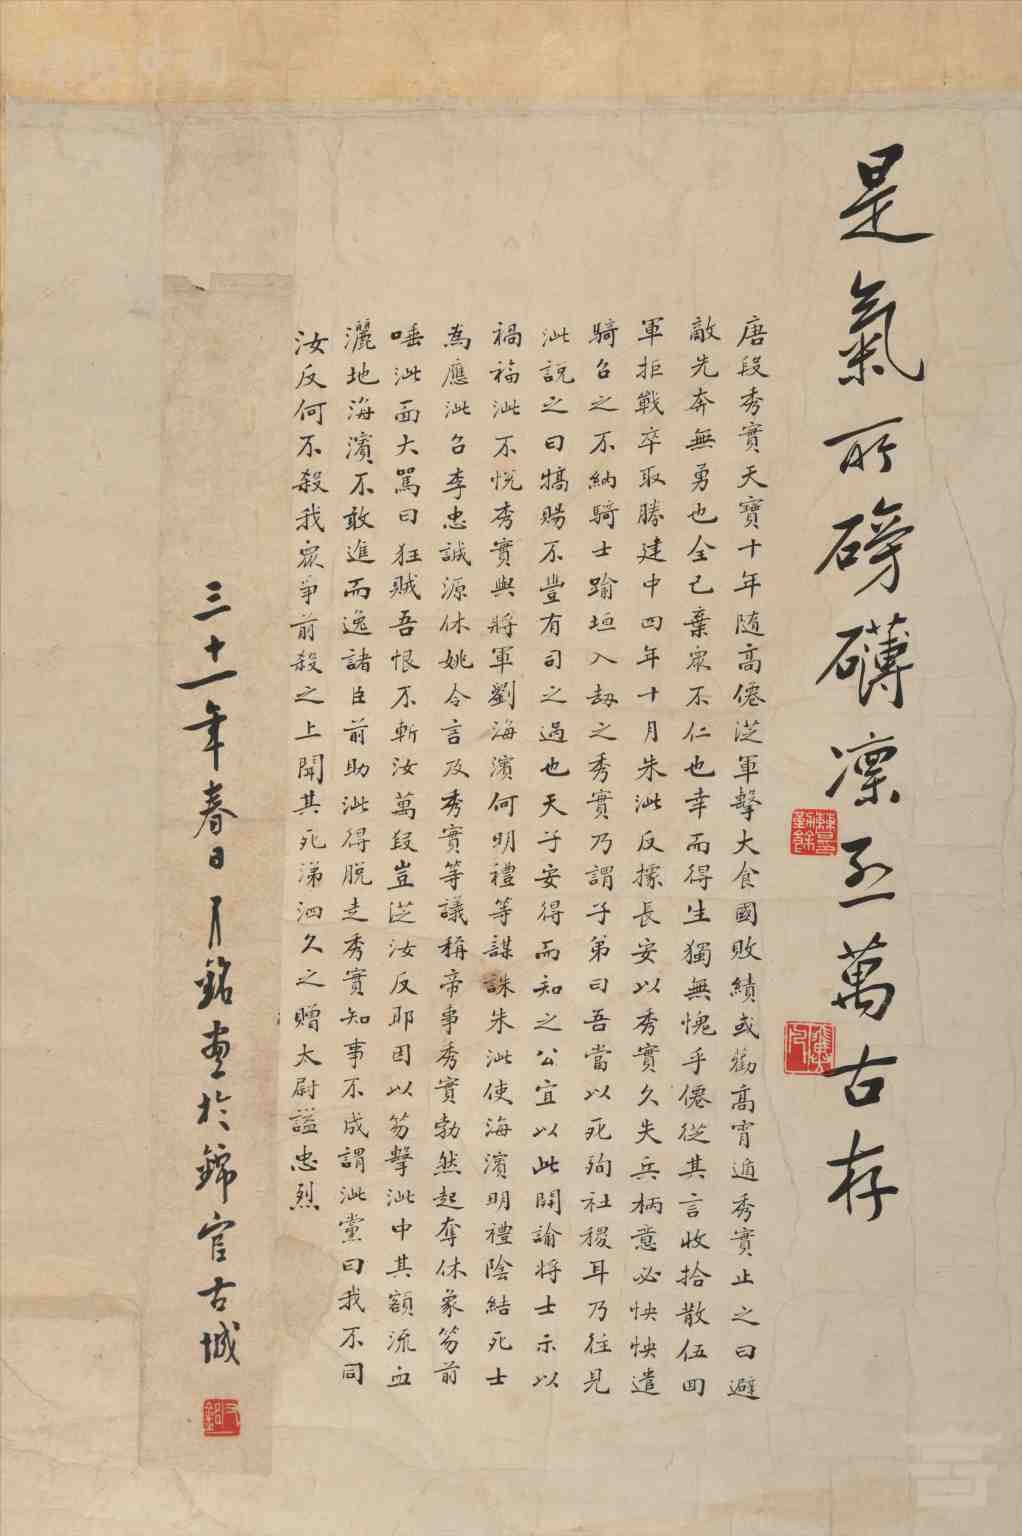 是氣所磅礴凜烈萬古存
唐段秀實天寶十年隨高僊芝軍擊大食國敗績或勸高宵遁秀實止之曰避
敵先奔無勇也全己棄眾不仁也幸而得生獨無愧乎僊從其言收拾散伍回
軍拒戰卒取勝建中四年十月朱泚反據長安以秀實久失兵柄意必怏怏遣
騎召之不納騎士踰垣入劫之秀實乃謂子弟曰吾當以死殉社稷耳乃往見
泚說之曰犒賜不豐有司之過也天子安得而知之公宜以此開諭將士示以
禍福泚不悅秀實與將軍劉海濱何明禮等謀誅朱泚使海濱明禮陰結死士
為應泚召李忠誠源休姚令言及秀實等議稱帝事秀實勃然起奪休象笏前
唾泚面大罵曰狂賊吾恨不斬汝萬段豈從汝反耶因以笏擊泚中其額流血
灑地海濱不敢進而逸諸臣前助泚得脫走秀實知事不成謂泚黨曰我不同
汝反何不殺我眾爭前殺之上聞其死涕泗久之贈太尉諡忠烈
三十一年春日月銘畫於錦官古城